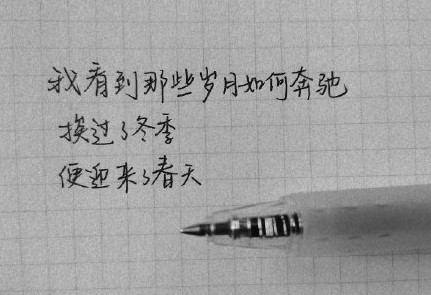 我看到那些岁月如何奔驰
挨过了冬季
便迎来了春天